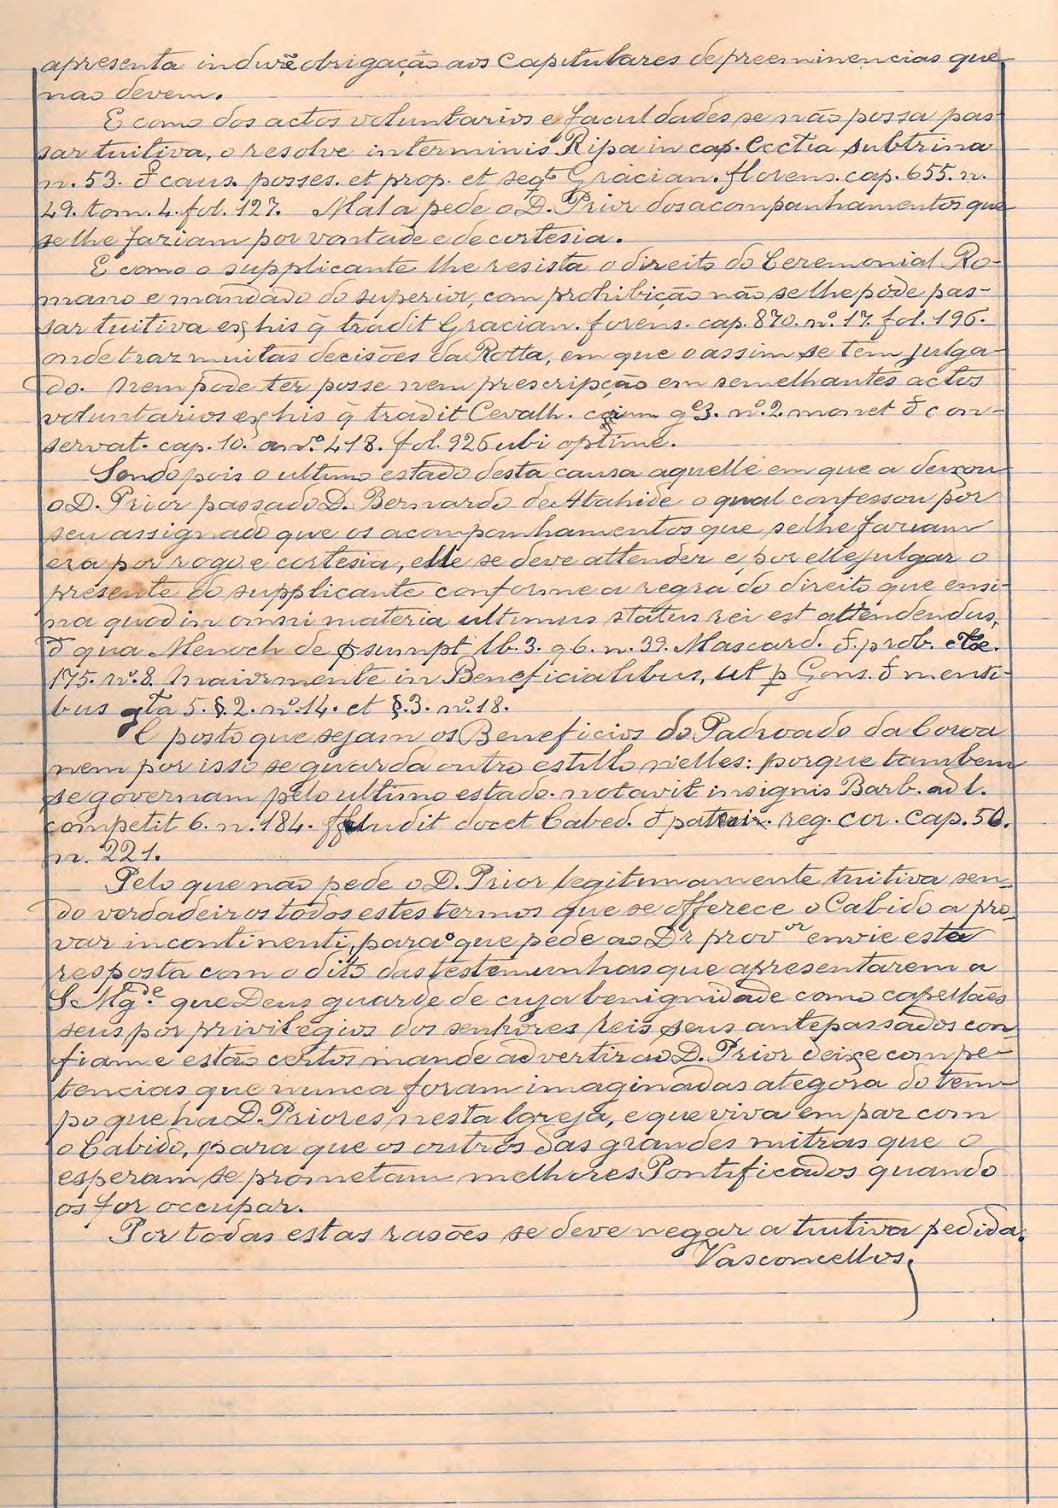 apresenta induzẽ obrigação aos Capitulares de preeminencias que
nao devem.
E como dos actos voluntarios e faculdades se não possa pas-
sar tuitiva, o resolve in terminis Ripa in cap. Ecctia subtrina
n. 53. de caus. posses. et prop. et seqt. Gracian. florens. cap. 655. n.
49. tom. 4. fol. 127. Mal a pede o D. Prior dos acompanhamentos que
se lhe fariam por vontade e de cortesia.
E como o supplicante lhe resista o direito do Ceremonial Ro-
mano e mandado do superior, com prohibição não se lhe póde pas-
sar tuitiva ex his q̃ tradit Gracian. forens. cap. 870. nº. 17. fol. 196.
onde traz muitas decisões da Rotta, em que o assim se tem julga-
do. Nem póde ter posse nem prescripção em semelhantes actos
voluntarios ex his q̃ tradit Cevalh. q. 3. nº. 2. monet de con-
servat. cap. 10. a nº. 418. fol. 926 ubi optime.
Sendo pois o ultimo estado desta causa aquelle em que a deixou
o D. Prior passado D. Bernardo de Atahide o qual confessou por
seu assignado que os acompanhamentos que se lhe fariam
era por rogo e cortesia, elle se deve attender e por elle julgar o
presente do supplicante conforme a regra do direito que ensi-
na quod in omni materia ultimus status rei est attendendus,
de qua Menoch de psumpt lb. 3. q 6. n. 39. Mascard. de prob. Cloe.
175. nº. 8. Maiormente in Beneficialibus, ut p Gons. de menti-
bus gta 5. §. 2. nº. 14. et §. 3. nº. 18.
E posto que sejam os Beneficios do Padroado da Coroa
nem por isso se guarda outro estillo n'elles: porque tambem
se governam pelo ultimo estado. notavit insignis Barb. ad l.
competit 6. n. 184. docet Cabed. de patroin. reg. cor. cap. 50.
n. 221.
Pelo que não pede o D. Prior legitimamente tuitiva sen-
do verdadeiros todos estes termos que se offerece o Cabido a pro-
var incontinenti, para o que pede ao Dr provor envie esta
resposta com o dito das testemunhas que apresentarem a
S Mgde. que Deus guarde de cuja benignidade como capellães
seus por privilegios dos senhores Reis seus antepassados con
fiam e estão certos mande advertir ao D. Prior deixe compe-
tencias que nunca foram imaginadas ategora do tem-
po que ha D. Priores nesta Igreja, e que viva em paz com
o Cabido, para que os outros das grandes mitras que o
esperam, se prometam melhores Pontificados quando
os for occupar.
Por todas estas rasões se deve negar a tuitiva pedida.
Vasconcellos